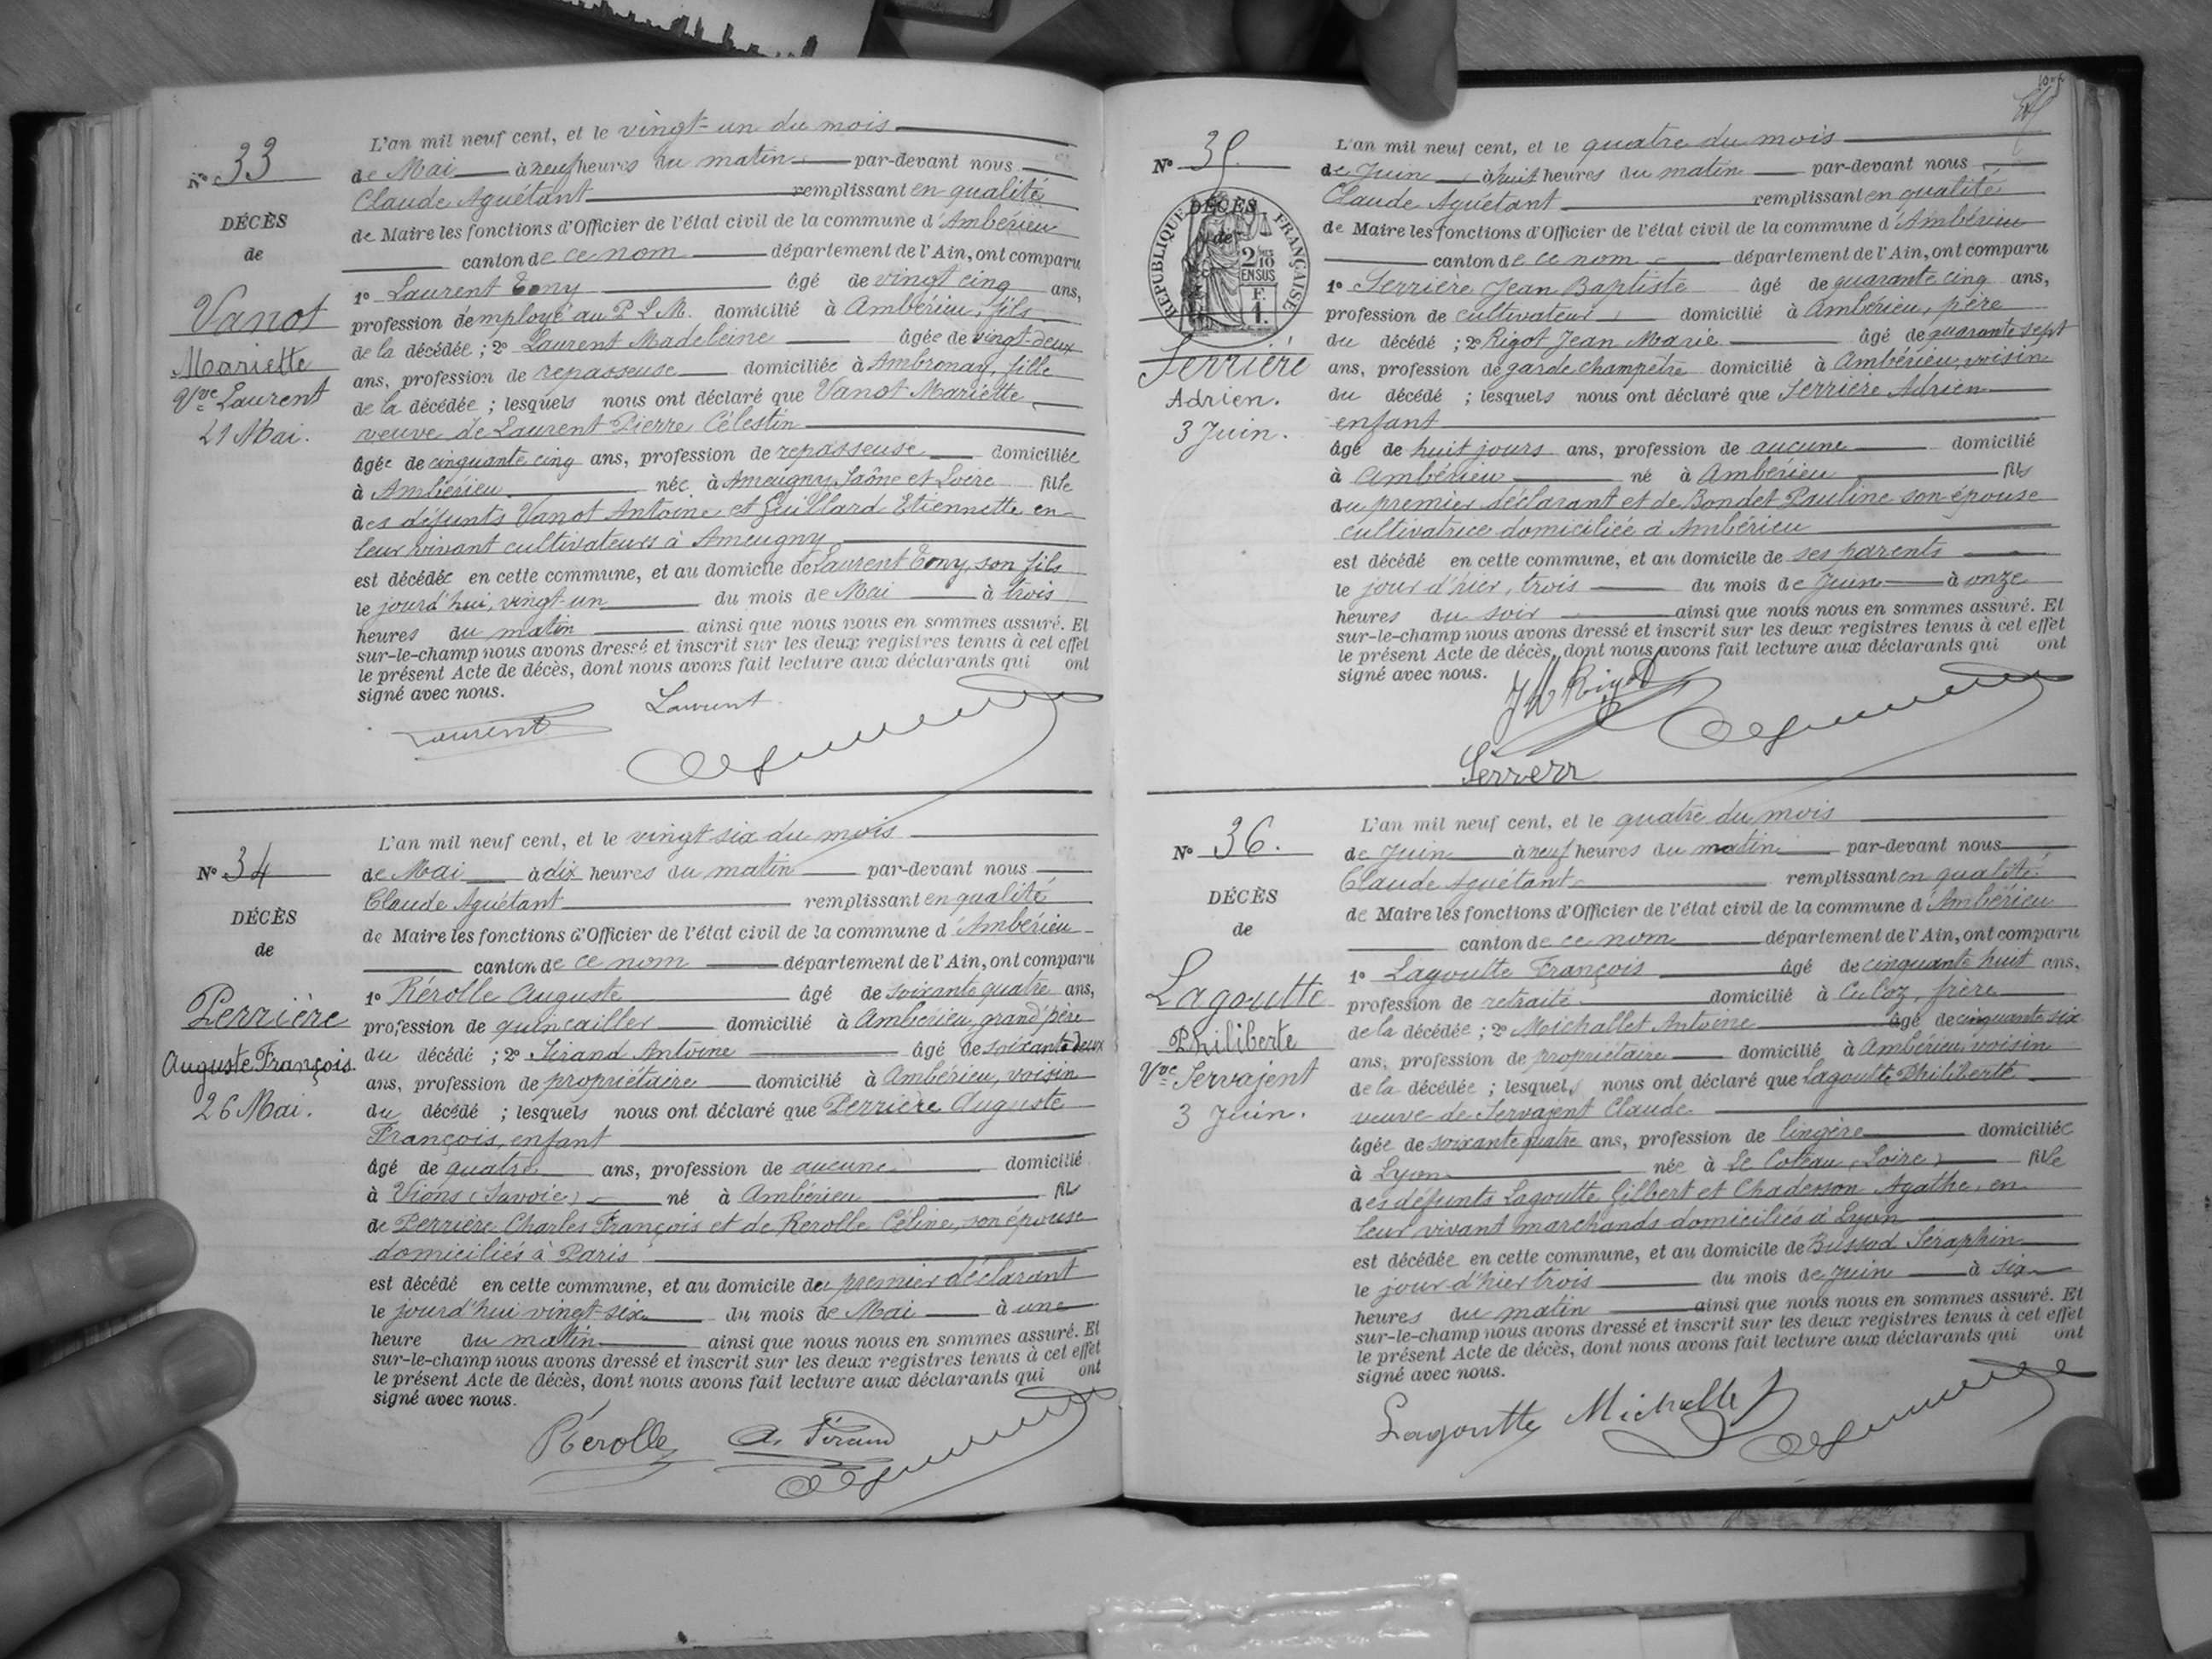 N° 33
DÉCÈS
de
Vanot
Mariette
Vve Laurent
21 Mai.
L'an mil neuf cent, et le vingt-un du mois
de Mai à neuf heures du matin par-devant nous
Claude Aguétant remplissant en qualité
de Maire les fonctions d'Officier de l'état civil de la commune d'Ambérieu
canton de ce nom département de l'Ain, ont comparu
1° Laurent Tony âgé de vingt cinq ans,
profession d'employé au P L M. domicilié à Ambérieu, fils
de la décédée ; 2° Laurent Madeleine âgée de vingt-deux
ans, profession de repasseuse domiciliée à Ambronay, fille
de la décédée ; lesquels nous ont déclaré que Vanot Mariette
veuve de Laurent Pierre Célestin
âgée de cinquante cinq ans, profession de repasseuse domiciliée
à Ambérieu née à Ameugny Saône et Loire fille
des défunts Vanot Antoine et Guillard Etiennette en
leur vivant cultivateurs à Ameugny
est décédée en cette commune, et au domicile de Laurent Tony, son fils
le jourd'hui, vingt-un du mois de Mai à trois
heures du matin ainsi que nous nous en sommes assuré. Et
sur-le-champ nous avons dressé et inscrit sur les deux registres tenus à cet effet
le présent Acte de décès, dont nous avons fait lecture aux déclarants qui ont
signé avec nous.
Laurent
Laurent
N° 34
DÉCÈS
de
Perrière
Auguste François
26 Mai.
L'an mil neuf cent, et le vingt six du mois
de Mai à dix heures du matin par-devant nous
Claude Aguétant remplissant en qualité
de Maire les fonctions d'Officier de l'état civil de la commune d'Ambérieu
canton de ce nom département de l'Ain, ont comparu
1° Rérolle Auguste âgé de soixante quatre ans,
profession de quincailler domicilié à Ambérieu, grand'père
du décédé ; 2° Tirand Antoine âgé de soixante deux
ans, profession de propriétaire domicilié à Ambérieu, voisin
du décédé ; lesquels nous ont déclaré que Perrière Auguste
François, enfant
âgé de quatre ans, profession de aucune domicilié
à Vions (Savoie) né à Ambérieu fils
de Perrière Charles François et de Rerolle Céline, son épouse
domiciliés à Paris
est décédé en cette commune, et au domicile de premier déclarant
le jourd'hui vingt-six du mois de Mai à une
heure du matin ainsi que nous nous en sommes assuré. Et
sur-le-champ nous avons dressé et inscrit sur les deux registres tenus à cet effet
le présent Acte de décès, dont nous avons fait lecture aux déclarants qui ont
signé avec nous.
Rérolle
N° 35
DÉCÈS
de
RÉPUBLIQUE FRANÇAISE
2/10
EN SUS
F.
1.
Serrière
Adrien.
3 Juin.
L'an mil neuf cent, et le quatre du mois
de Juin à huit heures du matin par-devant nous
Claude Aguétant remplissant en qualité
de Maire les fonctions d'Officier de l'état civil de la commune d'Ambérieu
canton de ce nom département de l'Ain, ont comparu
1° Serrière Jean Baptiste âgé de quarante cinq ans,
profession de cultivateur domicilié à Ambérieu, père
du décédé ; 2° Rigot Jean Marie âgé de quarante sept
ans, profession de garde champêtre domicilié à Ambérieu, voisin
du décédé ; lesquels nous ont déclaré que Serrière Adrien
enfant
âgé de huit jours ans, profession de aucune domicilié
à Ambérieu né à Ambérieu fils
du premier déclarant et de Bondet Pauline son épouse
cultivatrice domiciliée à Ambérieu
est décédé en cette commune, et au domicile de ses parents
le jour d'hier, trois du mois de Juin à onze
heures du soir ainsi que nous nous en sommes assuré. Et
sur-le-champ nous avons dressé et inscrit sur les deux registres tenus à cet effet
le présent Acte de décès, dont nous avons fait lecture aux déclarants qui ont
signé avec nous.
Rigot
N° 36.
DÉCÈS
de
Lagoutte
Philiberte
Vve Servajent
3 Juin.
L'an mil neuf cent, et le quatre du mois
de Juin à neuf heures du matin par-devant nous
Claude Aguétant remplissant en qualité
de Maire les fonctions d'Officier de l'état civil de la commune d'Ambérieu
canton de ce nom département de l'Ain, ont comparu
1° Lagoutte François âgé de cinquante huit ans,
profession de retraité domicilié à Culoz, frère
de la décédée ; 2° Michallet Antoine âgé de cinquante six
ans, profession de propriétaire domicilié à Ambérieu voisin
de la décédée ; lesquels nous ont déclaré que Lagoutte Philiberte
veuve de Servajent Claude
âgée de soixante quatre ans, profession de lingère domiciliée
à Lyon née à Le Coteau (Loire) fille
des défunts Lagoutte Gilbert et Chadesson Agathe, en
leur vivant marchands domiciliés à Lyon
est décédée en cette commune, et au domicile de Bussod Séraphin
le jour d'hier trois du mois de Juin à six
heures du matin ainsi que nous nous en sommes assuré. Et
sur-le-champ nous avons dressé et inscrit sur les deux registres tenus à cet effet
le présent Acte de décès, dont nous avons fait lecture aux déclarants qui ont
signé avec nous.
Lagoutte Michallet